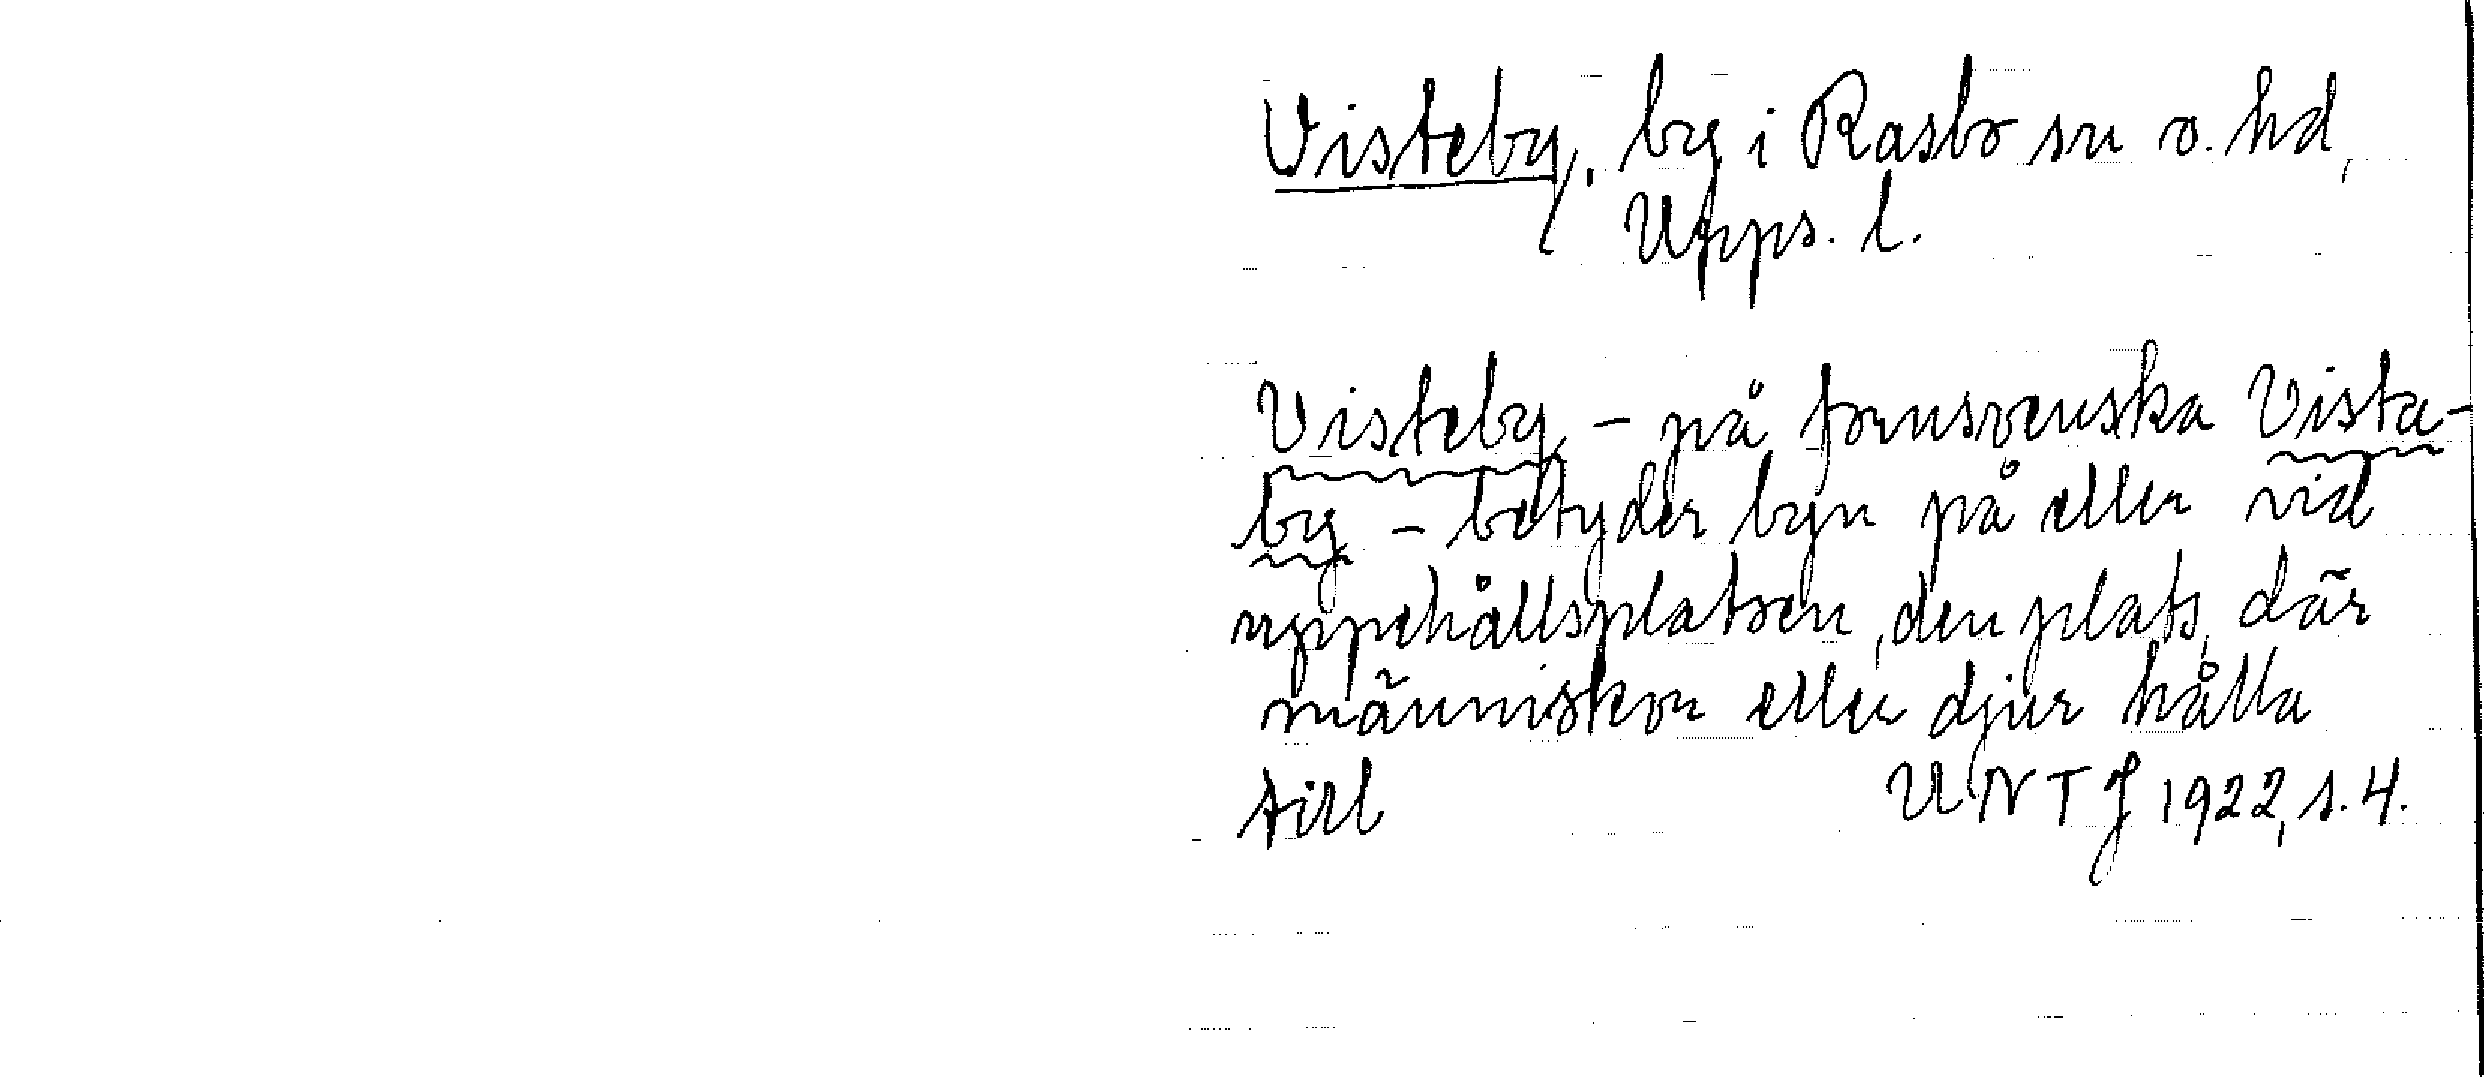 Visteby, by i Rasbo sn o. hd,
Upps. l.
Visteby – på fornsvenska Vista-
by – betyder byn på eller vid
uppehållsplatsen, den plats, där
människor eller djur hålla
till UNTJ 1922, s. 4.